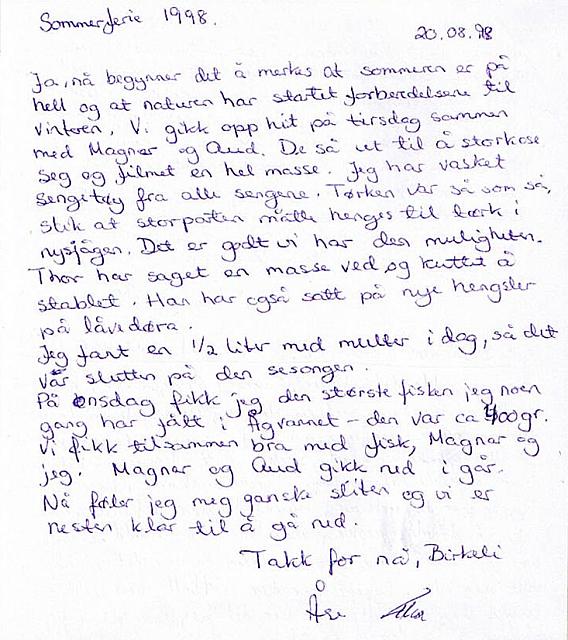 Sommerferie 1998.
20.08.98
Ja, nå begynner det å merkes at sommeren er på
hell og at naturen har startet forberedelsene til
vinteren. Vi gikk opp hit på tirsdag sammen
med Magnar og Aud. De så ut til å storkose
seg og filmet en hel masse. Jeg har vasket
sengetøy fra alle sengene. Tørken var så som så,
slik at storparten måtte henges til tørk i
nysjågen. Det er godt vi har den muligheten.
Thor har saget en masse ved og kuttet å
stablet. Han har også satt på nye hengsler
på låvedøra.
Jeg fant en 1/2 liter med multer i dag, så det
var slutten på den sesongen.
På onsdag fikk jeg den største fisken jeg noen
gang har fått i Ågvannet - den var ca 400gr.
Vi fikk tilsammen bra med fisk, Magnar og
jeg. Magnar og Aud gikk ned i går.
Nå føler jeg meg ganske sliten og vi er
nesten klar til å gå ned.
Takk for nå, Birkeli
Åse Thor